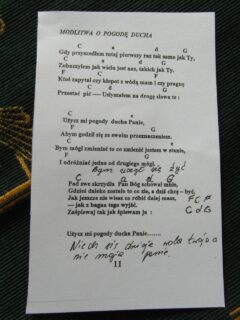 MODLITWA O POGODĘ DUCHA
C a d G
Gdy przyszedłem tutaj pierwszy raz tak samo jak Ty,
C a d G
Zobaczyłem jak wielu jest nas, takich jak Ty,
F C F G
Ktoś zapytał czy kłopot z wódą mam i czy pragnę
C d G
Przestać pić — Usłyszałem na drogę słowa te :
C a d G
Użycz mi pogody ducha Panie,
F G
Abym godził się ze swoim przeznaczeniem.
C a d G
Bym mógł zmieniać to co zmienić jestem w stanie,
F G
I odróżniać jedno od drugiego mógł.
Bym uczył się żyć
C a d G
Pod swe skrzydła Pan Bóg schował mnie,
Gdzieś daleko zostało to co złe, a dziś chcę – być,
Jak jeszcze nie wiesz co robić dalej masz, F C F
— jak z bagna tego wyjść. C d G
Zaśpiewaj tak jak śpiewam ja :
Użycz mi pogody ducha Panie.......
Niech się dzieje wola twoja a
nie moja panie.
11